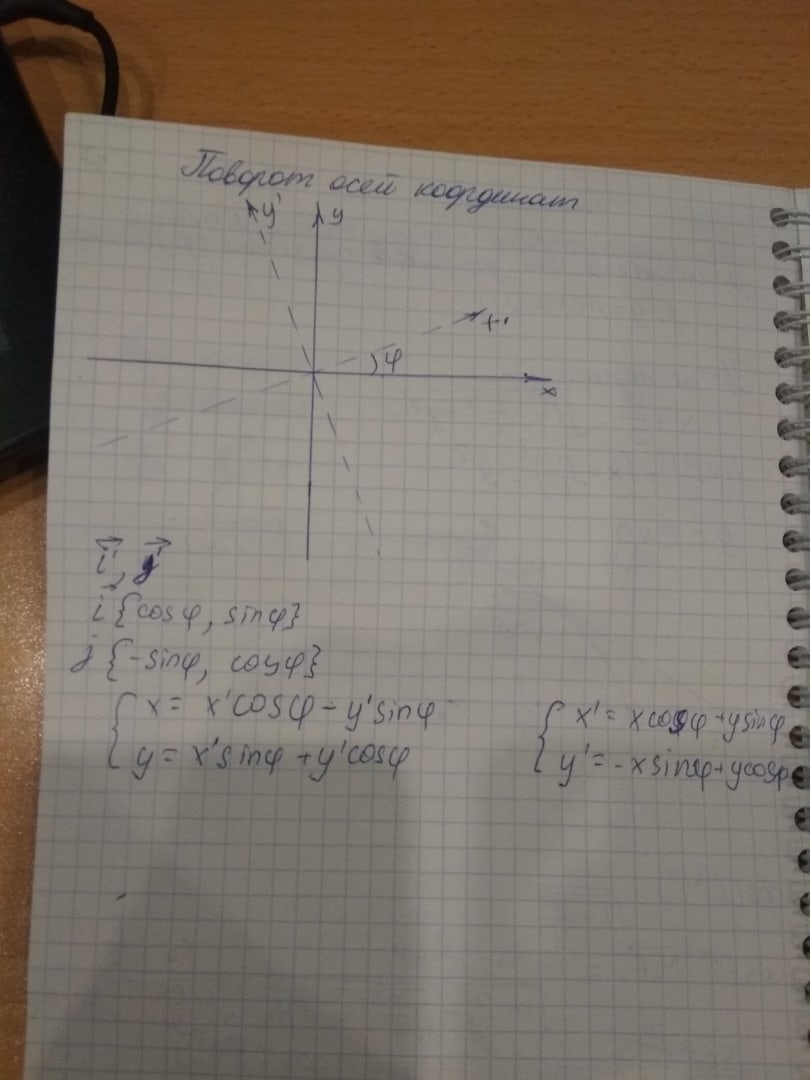 Поворот осей координат
y' y
x'
φ
x
i⃗', j⃗'
i⃗'{cosφ, sinφ}
j{-sinφ, cosφ}
{ x = x'cosφ - y'sinφ
y = x'sinφ + y'cosφ
{ x' = xcosφ + ysinφ
y' = -xsinφ + ycosφ